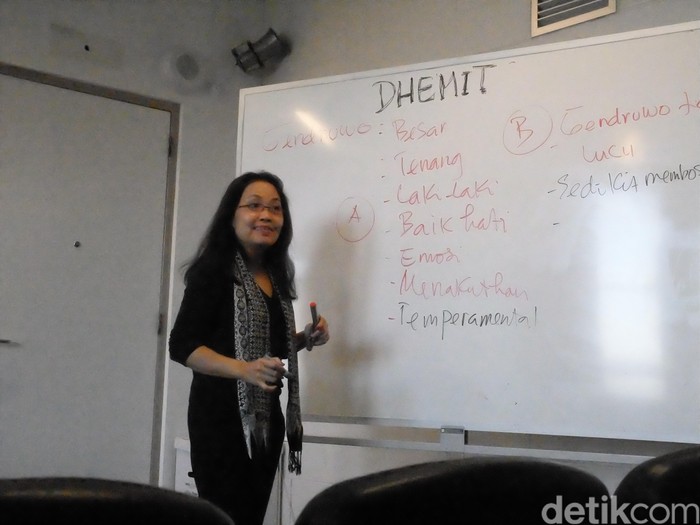 DHEMIT
Gendruwo : Besar
- Tenang
- Laki-laki
A
- Baik hati
- Emosi
- Menakuthan
- Temperamental
B
- Gendruwo
Lucu
- Sedikit
-
detikcom